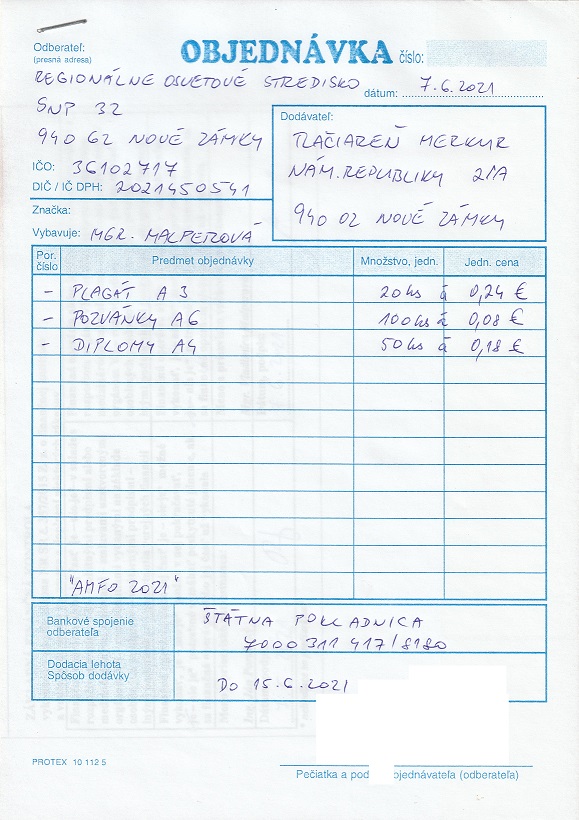 OBJEDNÁVKA číslo:
Odberateľ:
(presná adresa)
REGIONÁLNE OSVETOVÉ STREDISKO
dátum: 7.6.2021
SNP 32
940 62 NOVÉ ZÁMKY
IČO: 36102717
DIČ / IČ DPH: 2021450541
Dodávateľ:
TLAČIAREŇ MERKUR
NÁM. REPUBLIKY 2/A
940 02 NOVÉ ZÁMKY
Značka:
Vybavuje: MGR.
Por. číslo Predmet objednávky Množstvo, jedn. Jedn. cena
- PLAGÁT A3 20 ks á 0,24 €
- POZVÁNKY A6 100 ks á 0,08 €
- DIPLOMY A4 50 ks á 0,18 €
"AMFO 2021"
Bankové spojenie
odberateľa
ŠTÁTNA POKLADNICA
7000311417/8180
Dodacia lehota
Spôsob dodávky
DO 15.6.2021
PROTEX 10 112 5
Pečiatka a pod objednávateľa (odberateľa)